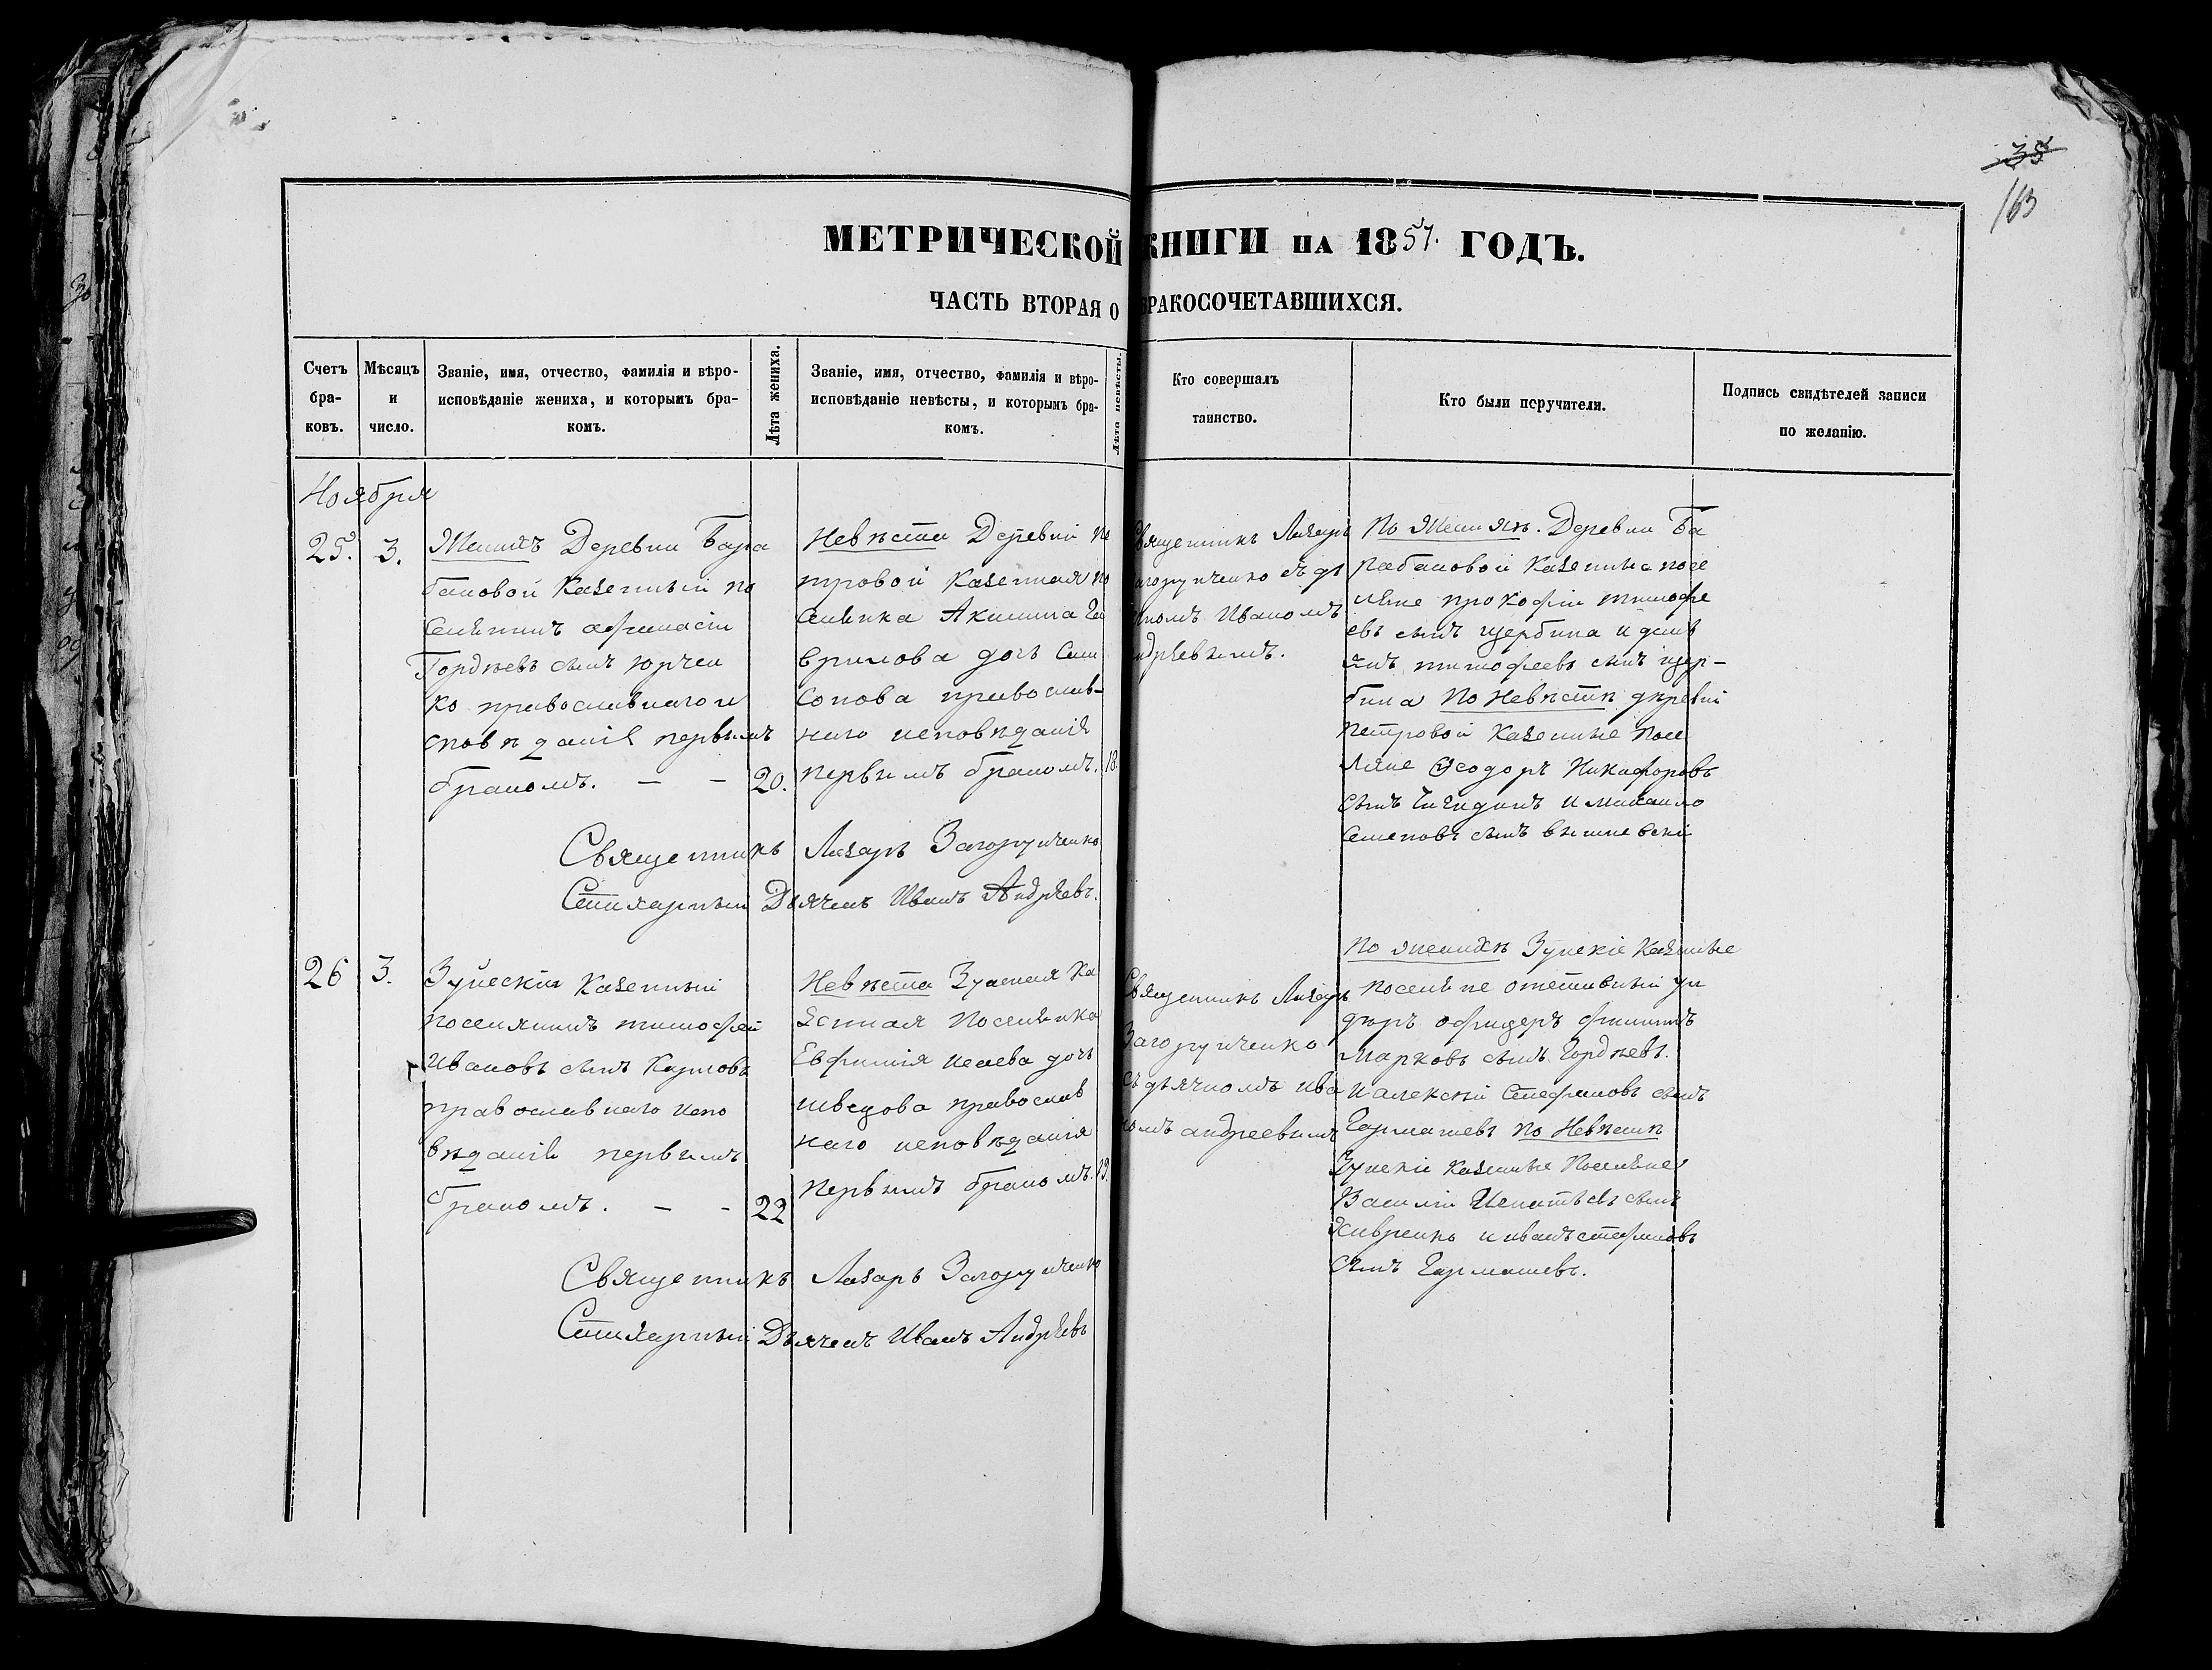 35
163
МЕТРИЧЕСКОЙ КНИГИ НА 1857. ГОДЪ.
ЧАСТЬ ВТОРАЯ О БРАКОСОЧЕТАВШИХСЯ.
Счетъ бра- ковъ.
Мѣсяцъ и число.
Званіе, имя, отчество, фамилія и вѣро-
исповѣданіе жениха, и которымъ бра-
комъ.
Лѣта жениха.
Званіе, имя, отчество, фамилія и вѣро-
исповѣданіе невѣсты, и которымъ бра-
комъ.
Лѣта невѣсты.
Кто совершалъ
таинство.
Кто были поручители.
Подпись свидѣтелей записи
по желанію.
Ноября
25. 3.
Женихъ Деревни Бара
бановой Казенный по
селянинъ афанасій
Гордѣевъ сынъ юрчен
ко православнаго и
сповѣданія первымъ
бракомъ. — — 20.
Невѣста Деревни пе
тровой Казенная по
селянка Акилина Га
врилова дочь Сам
сонова православ-
наго исповѣданія
первымъ бракомъ. 18.
Священникъ Лазарь
Загоруиченко съ дья
чкомъ Иваномъ
андреевымъ.
По Женихѣ. Деревни Ба
рабановой Казенные посе
ляне прокофій тимофе
евъ сынъ щербина и
тимофеевъ сынъ щер-
бина По Невѣстѣ деревни
петровой Казенные посе
ляне Ѳеодоръ Никифоровъ
сынъ и михаило
семеновъ сынъ вишневскій
Священникъ Лазарь Загоруиченко
Стихарный Дьячекъ Иванъ Андреевъ.
26 3.
Зуйскій Казенный
поселянинъ тимофей
Ивановъ сынъ Карповъ
православнаго испо
вѣданія первымъ
бракомъ. — - 22
Невѣста Зуйская Ка
зенная Поселянка
Евфимія исаева дочь
шведова православ
наго исповѣданія
первымъ бракомъ. 19.
Священникъ Лазарь
Загоруиченко
съ дьячкомъ ива
номъ андреевымъ
По женихѣ Зуйскіе Казенные
поселяне отставный ун
деръ офицеръ филиппъ
Марковъ сынъ Гордѣевъ.
и алексѣй Стефановъ сынъ
Гармашевъ по Невѣстѣ
Зуйскіе Казенные Поселяне
Василій Игнатьевъ сынъ
и иванъ стефановъ
сынъ Гармашевъ.
Священникъ Лазарь Загоруиченко
Стихарный Дьячекъ Иванъ Андреевъ